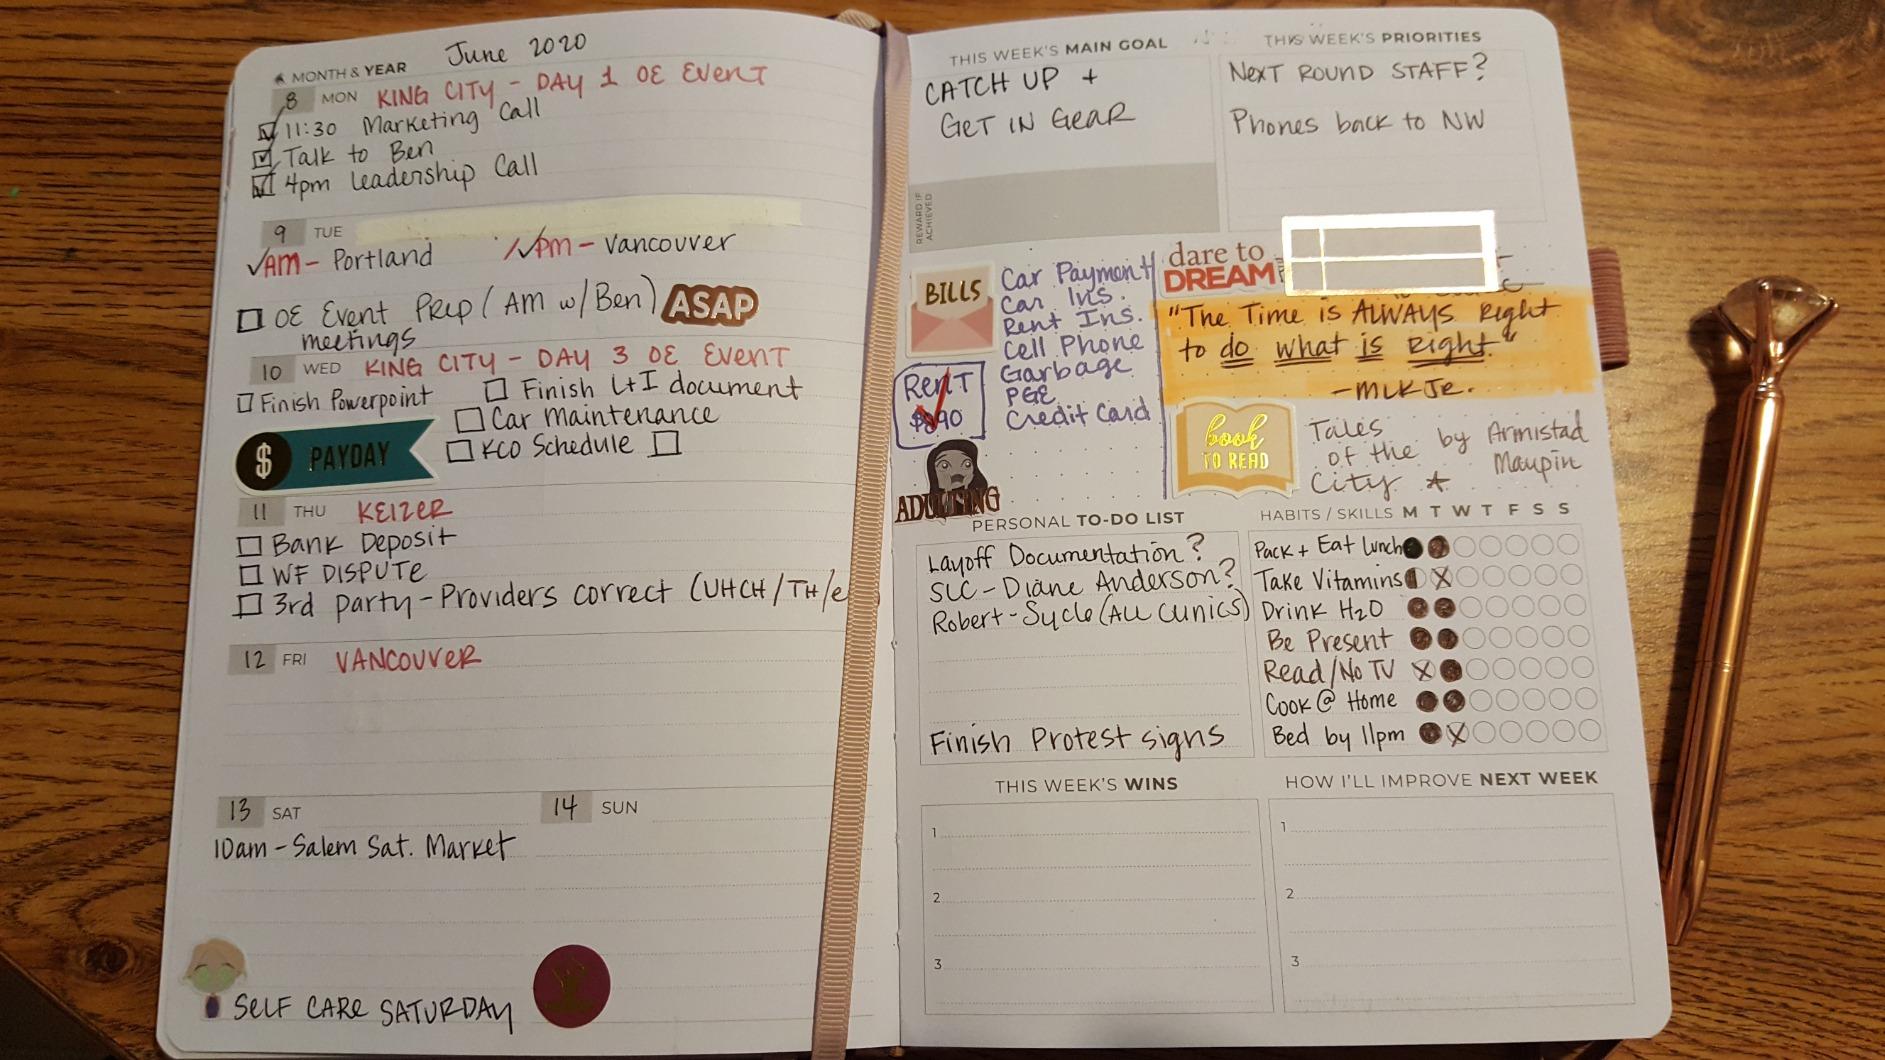 MONTH & YEAR June 2020
8 MON KING CITY - DAY 1 OE EVENT
11:30 Marketing Call
Talk to Ben
4pm Leadership Call
9 TUE
AM - Portland PM - Vancouver
OE Event Prep (AM w/Ben) ASAP
meetings
10 WED KING CITY - DAY 3 OE EVENT
Finish Powerpoint Finish L+I document
Car Maintenance
$ PAYDAY KCO Schedule
11 THU KEIZER
Bank Deposit
WF DISPUTE
3rd party - Providers correct (UHCH/TH/e
12 FRI VANCOUVER
13 SAT
10am - Salem Sat. Market
14 SUN
SELF CARE SATURDAY
THIS WEEK'S MAIN GOAL
CATCH UP +
GET IN GEAR
REWARD IF
ACHIEVED
THIS WEEK'S PRIORITIES
NEXT ROUND STAFF?
Phones back to NW
BILLS
Car Payment
Car Ins.
Rent Ins.
Cell Phone
Garbage
PGE
Credit Card
RENT
$890
ADULTING
dare to
DREAM
"The Time is ALWAYS Right
to do what is Right."
- MLK Jr.
book
TO READ
Tales
of the
City
by Armistad
Maupin
PERSONAL TO-DO LIST
Layoff Documentation?
SLC - Diane Anderson?
Robert - Sycle (ALL CLINICS)
Finish Protest signs
HABITS / SKILLS M T W T F S S
Pack + Eat Lunch
Take Vitamins
Drink H2O
Be Present
Read/No TV
Cook @ Home
Bed by 11pm
THIS WEEK'S WINS
1
2
3
HOW I'LL IMPROVE NEXT WEEK
1
2
3